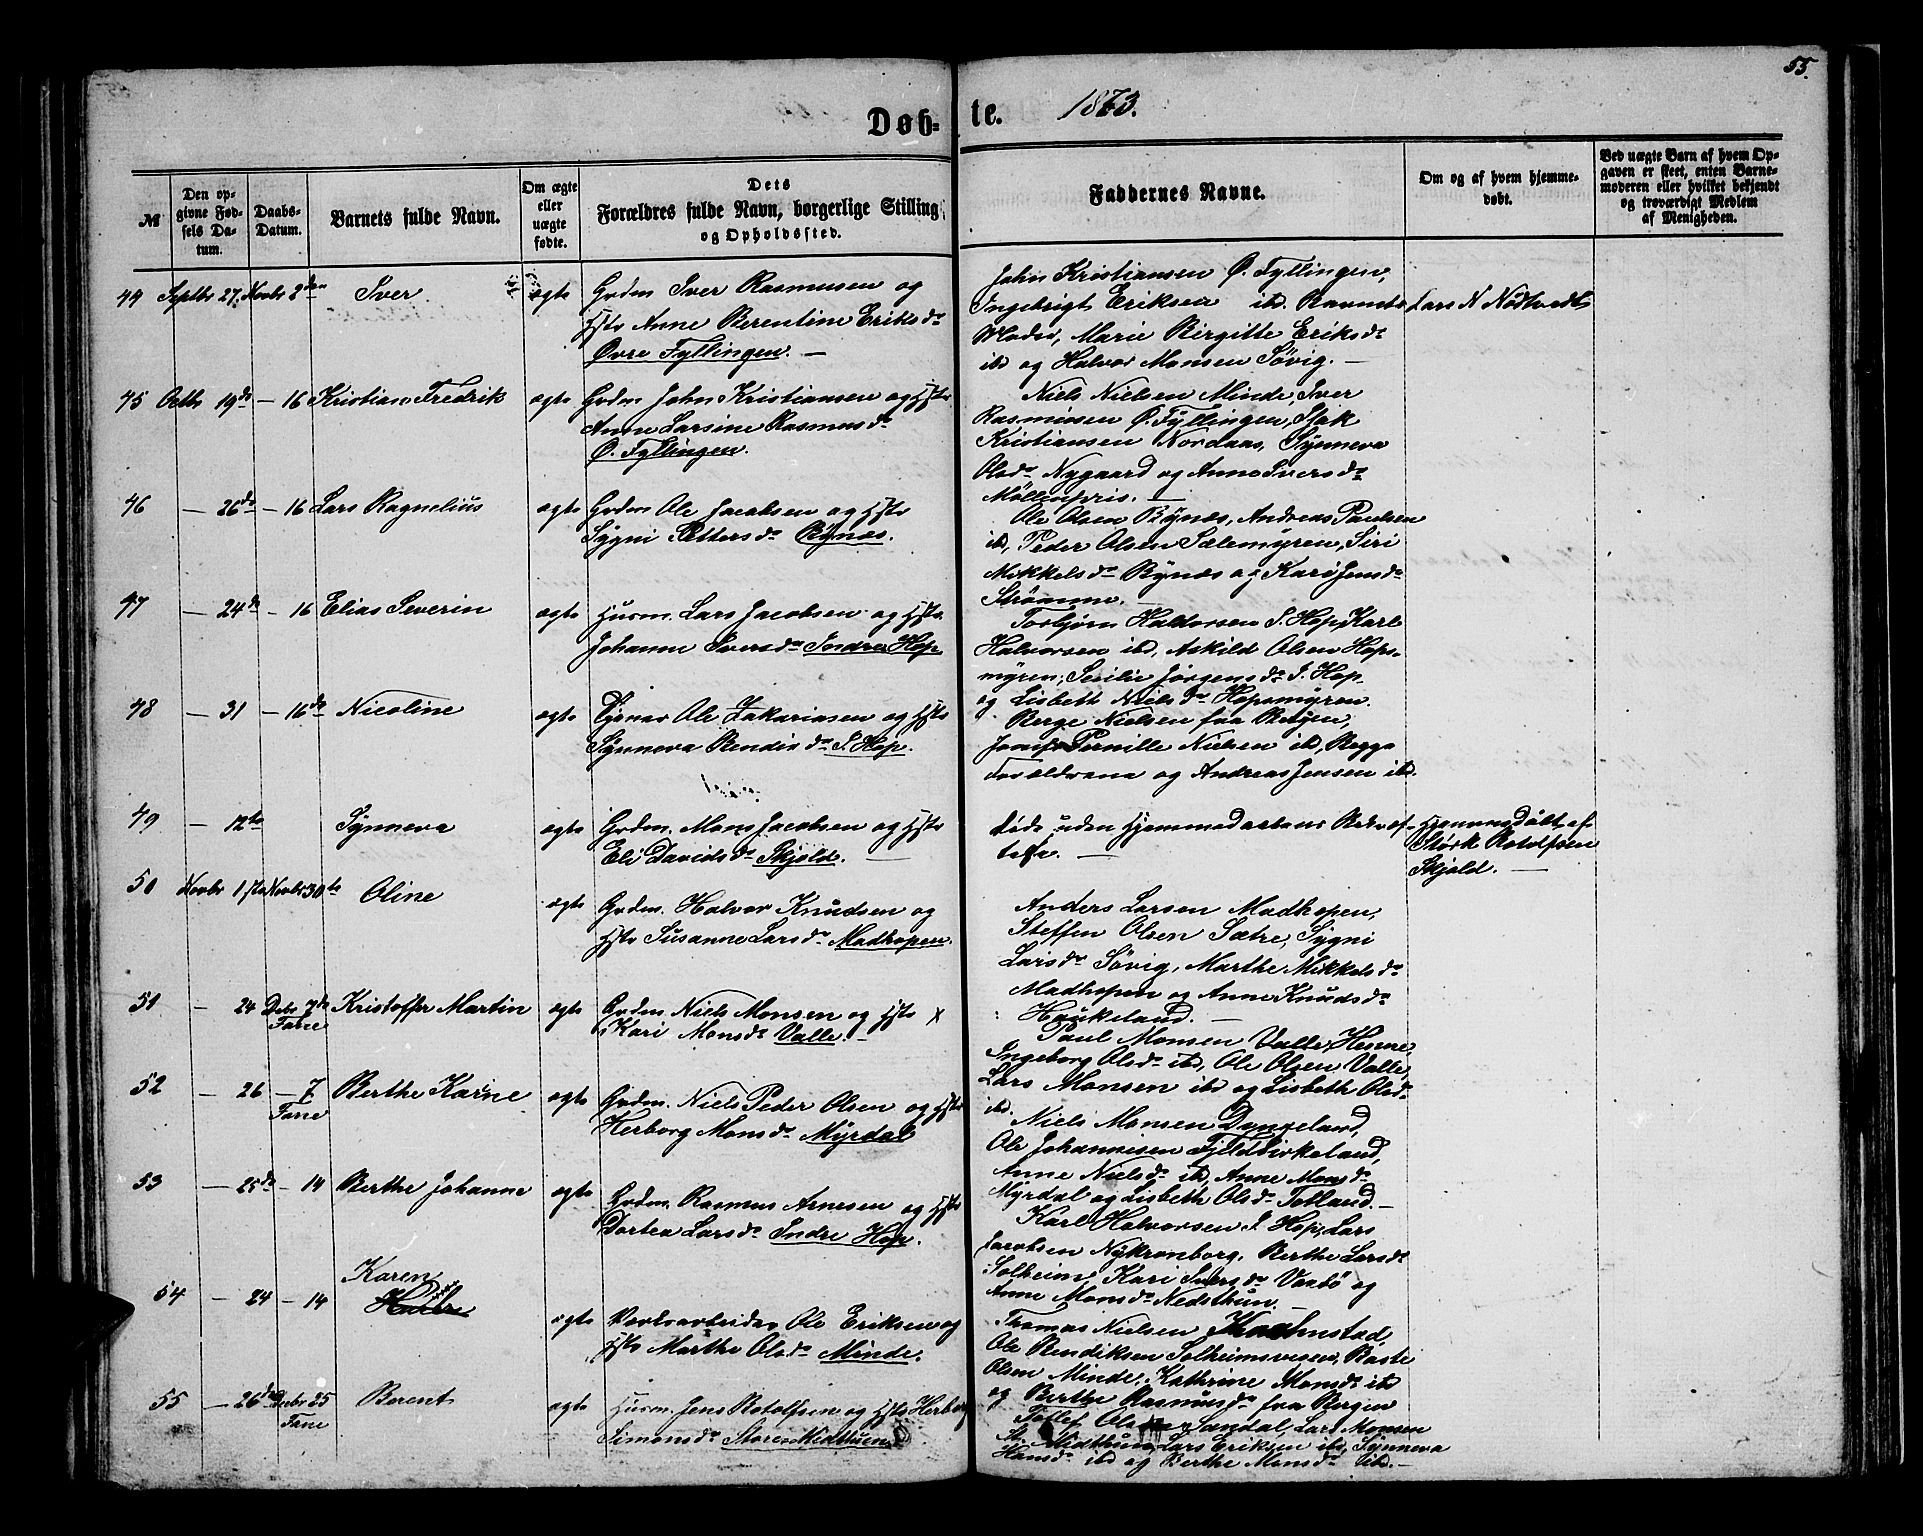 55.
Døb- te. 1873.
№
Den opgivne Fødsels Datum.
Daabs-Datum.
Barnets fulde Navn.
Om ægte eller uægte fødte.
Dets Forældres fulde Navn, borgerlige Stilling og Opholdssted.
Faddernes Navne.
Om og af hvem hjemmedøbt.
Ved uægte Barn af hvem Opgaven er skeet, enten Barnemoderen eller hvilket bekjendt og troværdigt Medlem af Menigheden.
44 Septbr 27. Novbr 2den Iver ægte Grdm Iver Rasmusen og
Hstr Anne Berentine Eriksdr
Øvre Fyllingen. —
John Kristiansen Ø. Fyllingen,
Ingebrigt Eriksen ibd. Barnets
Moder, Marie Birgitte Eriksdr
ibd og Halvor Monsen Søvig. —
Lars N Nødtvedt
45 Octb 19de — 16 Kristian Fredrik ægte Grdm John Kristiansen og Hstr
Anne Larsine Rasmusdr
Ø. Fyllingen.
Niels Nielsen Minde, Iver
Rasmusen Ø. Fyllingen, Isak
Kristiansen Nordaas, Synneva
Olsdr Nygaard og Anne Iversdr
Møllenpris. —
46 — 26de — 16 Lars Ragnelius ægte Grdm Ole Jacobsen og Hstr
Sygni Pettersdr Bønæs.
Ole Olsen Bønæs, Andreas Paulsen
ibd, Peder Olsen Sælemyren, Siri
Mikkelsdr Bønæs og Kari Jensdr
Strømme. —
47 — 24de — 16 Elias Severin ægte Husm. Lars Jacobsen og Hstr
Johanne Iversdr Indre Hop
Torbjørn Haldorsen I. Hop, Karl
Halvorsen ibd, Askild Olsen Hops-
myren; Secilie Jørgensdr I. Hop
og Lisbeth Nielsdr Hopsmyren.
48 — 31 — 16de Nicoline ægte Ole Zakariasen og Hstr
Synneva Bendixdr I. Hop.
Berge Nielsen fra Bergen,
Pernille Nielsen ibd, Begge
Forældrene og Andreas Jensen ibd.
49 — 12te Synneva ægte Grdm. Mons Jacobsen og Hstr
Eli Davidsdr Skjold. —
Døde uden Hjemmedaabens Bekræf-
telse. —
Hjemmedøbt af
Størk Rotolfsen
Skjold. —
50 Novbr 1ste Novbr 30te Oline ægte Grdm. Halvor Knudsen og
Hstr Susanne Larsdr Madhopen.
Anders Larsen Madhopen,
Steffen Olsen Sætre, Sygni
Larsdr Søvig, Marthe Mikkelsdr
Madhopen og Anne Knudsdr
Haukeland. —
51 — 24 Debr 7de Fane Kristoffer Martin ægte Grdm Niels Monsen og Hstr x
Kari Monsdr Valle. —
Paul Monsen Valle,
Ingeborg Olsdr ibd, Ole Olsen Valle,
Lars Monsen ibd og Lisbeth Olsdr
ibd.
52 — 26 — 7 Fane Berthe Karine ægte Grdm. Niels Peder Olsen og Hstr
Herborg Monsdr Myrdal
Niels Monsen Dyngeland,
Ole Johannesen Fjeldbirkeland,
Anne Nielsdr ibd, Anne Monsdr
Myrdal og Lisbeth Olsdr Totland. —
53 — 25de — 14 Berthe Johanne ægte Grdm. Rasmus Arnesen og Hstr
Dortea Larsdr Indre Hop.
Karl Halvorsen I. Hop, Lars
Jacobsen Nykronborg, Berthe Larsdr
Solheim, Kari Iversdr Vaabø og
Anne Monsdr Nedsthun. —
54 — 24 — 14 Karen ægte Værksarbeider Ole Eriksen og
Hstr Marthe Olsdr Minde.
Thomas Nielsen Kalmstad,
Ole Bendiksen Solheimsvegen, Baste
Olsen Minde, Kathrine Monsdr ibd
og Berthe Rasmusdr fra Bergen
55 — 26de Debr 25 Fane Berent ægte Husm. Jens Rotolfsen og Hstr Herborg
Simonsdr Store Midthuen
Tollef Olsen Sandal, Lars Monsen
St. Midthun, Lars Eriksen ibd, Synneva
Hansdr ibd og Berthe Monsdr ibd. —